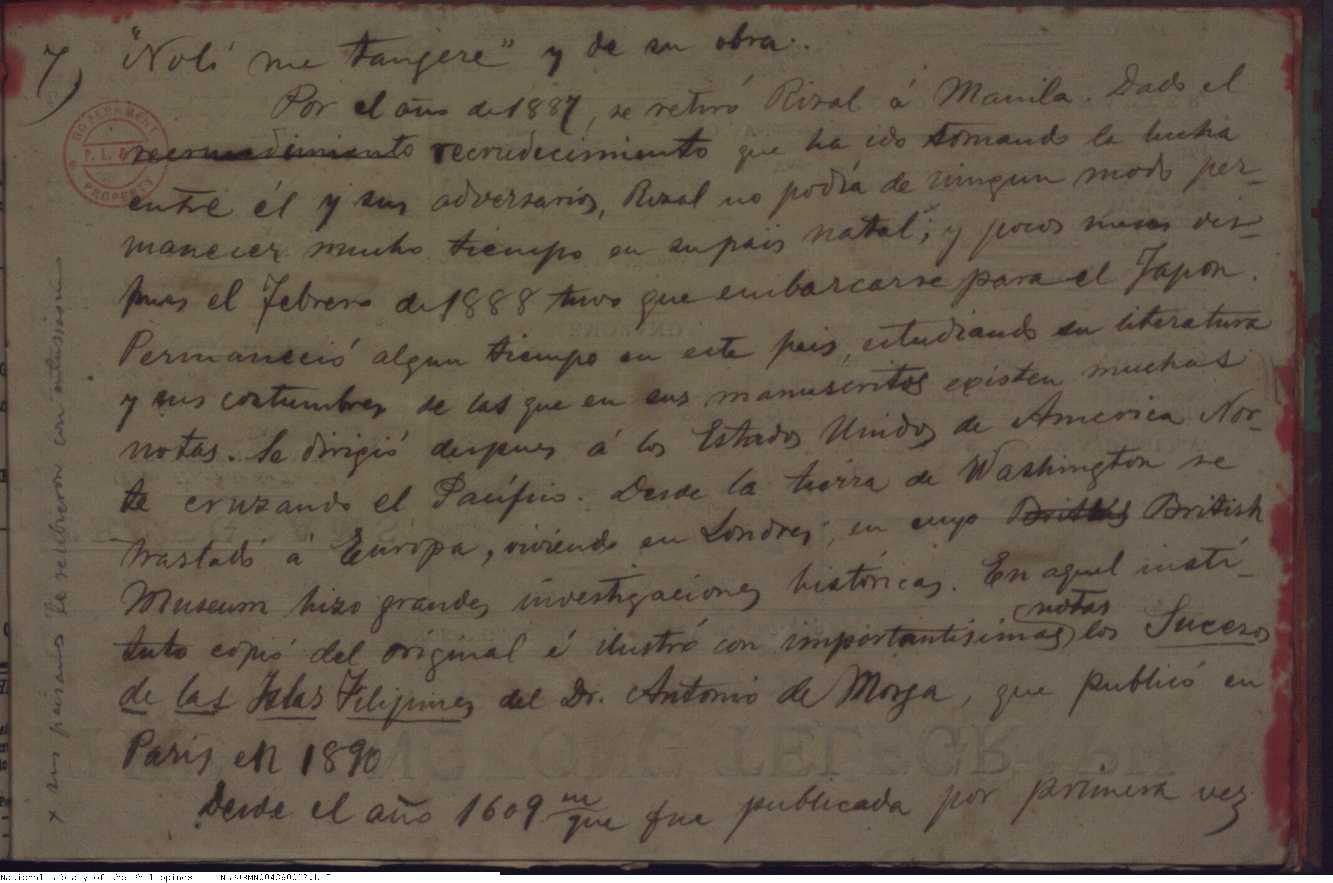 7) "Noli me tangere" y de su obra.
Por el año de 1887, se retiró Rizal á Manila. Dado el
recrudecimiento recrudecimiento que ha ido tomando la lucha
entre él y sus adversarios, Rizal no podía de ningun modo per-
manecer mucho tiempo en su pais natal; y pocos meses des-
pues el Febrero de 1888 tuvo que embarcarse para el Japon.
Permaneció algun tiempo en este pais, estudiando su literatura
y sus costumbres de las que en sus manuscritos existen muchas
notas. Se dirigió despues á los Estados Unidos de America Nor-
te cruzando el Pacífico. Desde la tierra de Washington se
trasladó á Europa, viviendo en Londres, en cuyo British
Museum hizo grandes investigaciones históricas. En aquel insti-
tuto copió del original é ilustró con importantísimas notas los Sucesos
de las Islas Filipinas del Dr. Antonio de Morga, que publicó en
Paris en 1890
Desde el año 1609 en que fue publicada por primera vez
x sus paisanos le recibieron con entusiasmo
GOVERNMENT
PROPERTY
National Library of the Philippines